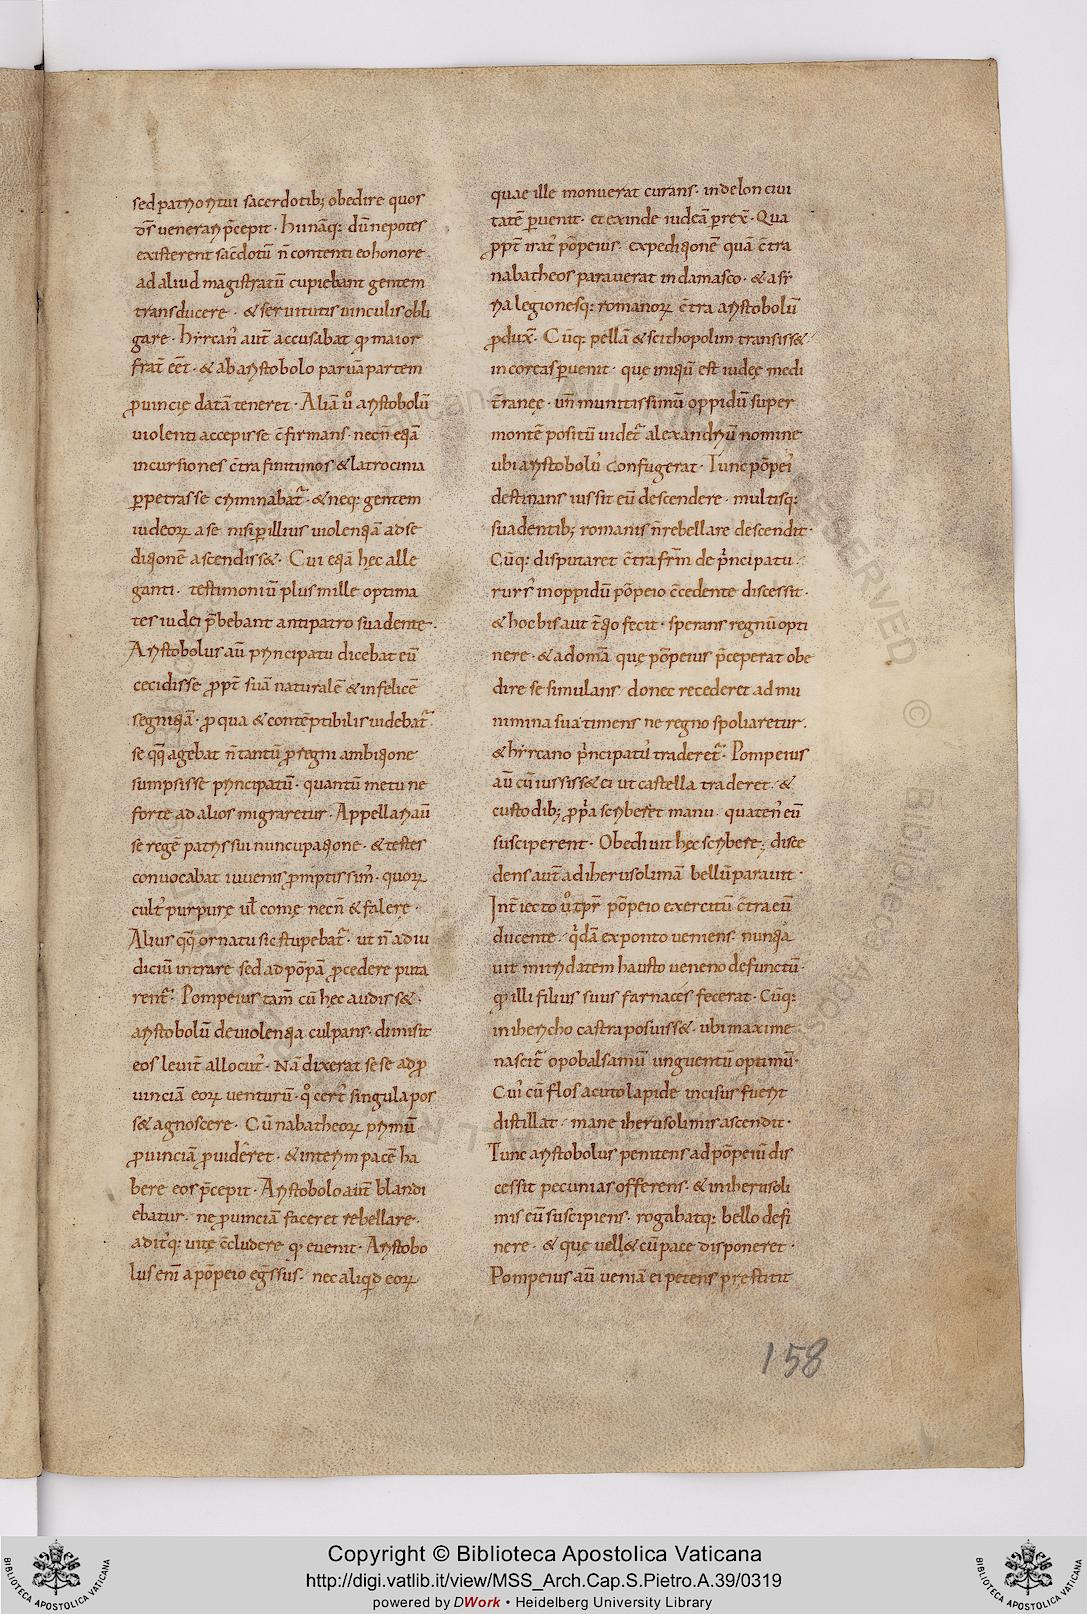 sed patrio ritui sacerdotib; obedire quos
d̄s venerari p̄cepit · Hi nāq: dū nepotes
existerent sac̄dotū n̄ contenti eo honore ·
ad aliud magistratū cupiebant gentem
transducere · & servitutis vinculis obli
gare · hyrcan᾽ aut̄ accusabat q᷒ maior
frat̄ eēt · & ab aristobolo parvā partem
ꝓvincię datā teneret · Aliā v̊ aristobolū
violent̄ accepisse c̄firmans · necn̄ etiā
incursiones c̄tra finitimos & latrocinia
ꝑpetrasse criminabat᷑ · & neq: gentem
iudeoꝝ a se nisi ꝑ illius violentiā ad se
ditionē ascendiss& · Cui etiā hęc alle
ganti · testimoniū plus mille optima
tes iudei p̄bebant antipatro suadente ·
Aristobolus aū principatu dicebat eū
cecidisse ꝓpt̄ suā naturalē & infelicē
segnitiā · ꝓ qua & contēptibilis videbat᷑ ·
se qq̄ agebat n̄ tantū ꝓ regni ambitione
sumpsisse principatū · quantū metu ne
forte ad alios migraretur · Appellari aū
se regē patris sui nuncupatione · & testes
convocabat iuvenis ꝓmptissim᾽ · quoꝝ
cult᾽ purpurę vl̄ comę necn̄ & falerę ·
Alius qq̄ ornatu sic stupebat᷑ · ut n̄ ad iu
diciū intrare sed ad pōpā ꝓcedere puta
rent᷑ · Pompeius tam̄ cū hęc audiss& ·
aristobolū de violentia culpans · dimisit
eos levit̄ allocut᾽ · Nā dixerat sese ad ꝓ
vinciā eoꝝ venturū · q̊ cert᾽ singula pos
s& agnoscere · Cū nabatheoꝝ primū
ꝓvinciā ꝓvideret · & interim pacē ha
bere eos p̄cepit · Aristobolo aut̄ blandi
ebatur · nę ꝓvinciā faceret rebellare ·
adit᾽q: vitę c̄cludere q᷒ evenit · Aristobo
lus eni᷒ a pōpeio eḡssus · nec aliqd̄ eoꝝ
quae ille monuerat curans · in delon civi
tatē ꝑvenit · et exinde iudeā ꝑrex̄ · Qua
ꝓpt̄ irat᾽ pōpeius · expeditionē quā c̄tra
nabatheos paraverat in damasco · & asy
ria legionesq: romanoꝝ c̄tra aristobolū
ꝓdux̄ · Cūq: pellā & scithopolim transiss&
in coreas ꝑvenit · quę initiū est iudeę medi
t̄ranęę · vn̄ munitissimū oppidū super
montē positū videt᷑ alexandriū nomine
ubi aristobolu᾽ confugerat · Tunc pōpei᾽
destinans iussit eū descendere · multisq:
suadentib; romanis n̄ rebellare descendit ·
Cūq: disputaret c̄tra fr̄m de p̄ncipatu ·
rurs᾽ in oppidū pōpeio c̄cedente discessit ·
& hoc bis aut t̄tio fecit · sperans regnū opti
nere · & ad omā quę pōpeius p̄ceperat obe
dire se simulans donec recederet ad mu
nimina sua timens ne regno spoliaretur ·
& hyrcano p̄ncipatu᾽ traderet᷑ · Pompeius
aū cū iussiss& ei ut castella traderet · &
custodib; ꝓp̄a scriberet manu · quaten᾽ eū
susciperent · Obedivit hęc scribere; disce
dens aut̄ ad iherusolimā bellū paravit ·
Int̄iecto v̊ tp̄r pōpeio exercitū c̄tra eū
ducente · q᾽dā ex ponto veniens · nuntia
vit mitridatem hausto veneno defunctū ·
q᷒ illi filius suus farnaces fecerat · Cūq:
in ihericho castra posuiss& · ubi maxime
nascit᷑ opobalsamū unguentū optimū ·
Cui᾽ cū flos acuto lapide incisus fuerit
distillat · mane iherusolimis ascendit ·
Tunc aristobolus penitens ad pōpeiū dis
cessit pecunias offerens · & in iherusoli
mis eū suscipiens · rogabatq: bello defi
nere · & quę vell& cū pace disponeret ·
Pompeius aū veniā ei petens pręstitit
158
Copyright © Biblioteca Apostolica Vaticana
http://digi.vatlib.it/view/MSS_Arch.Cap.S.Pietro.A.39/0319
powered by DWork • Heidelberg University Library
BIBLIOTECA APOSTOLICA VATICANA
BIBLIOTECA APOSTOLICA VATICANA